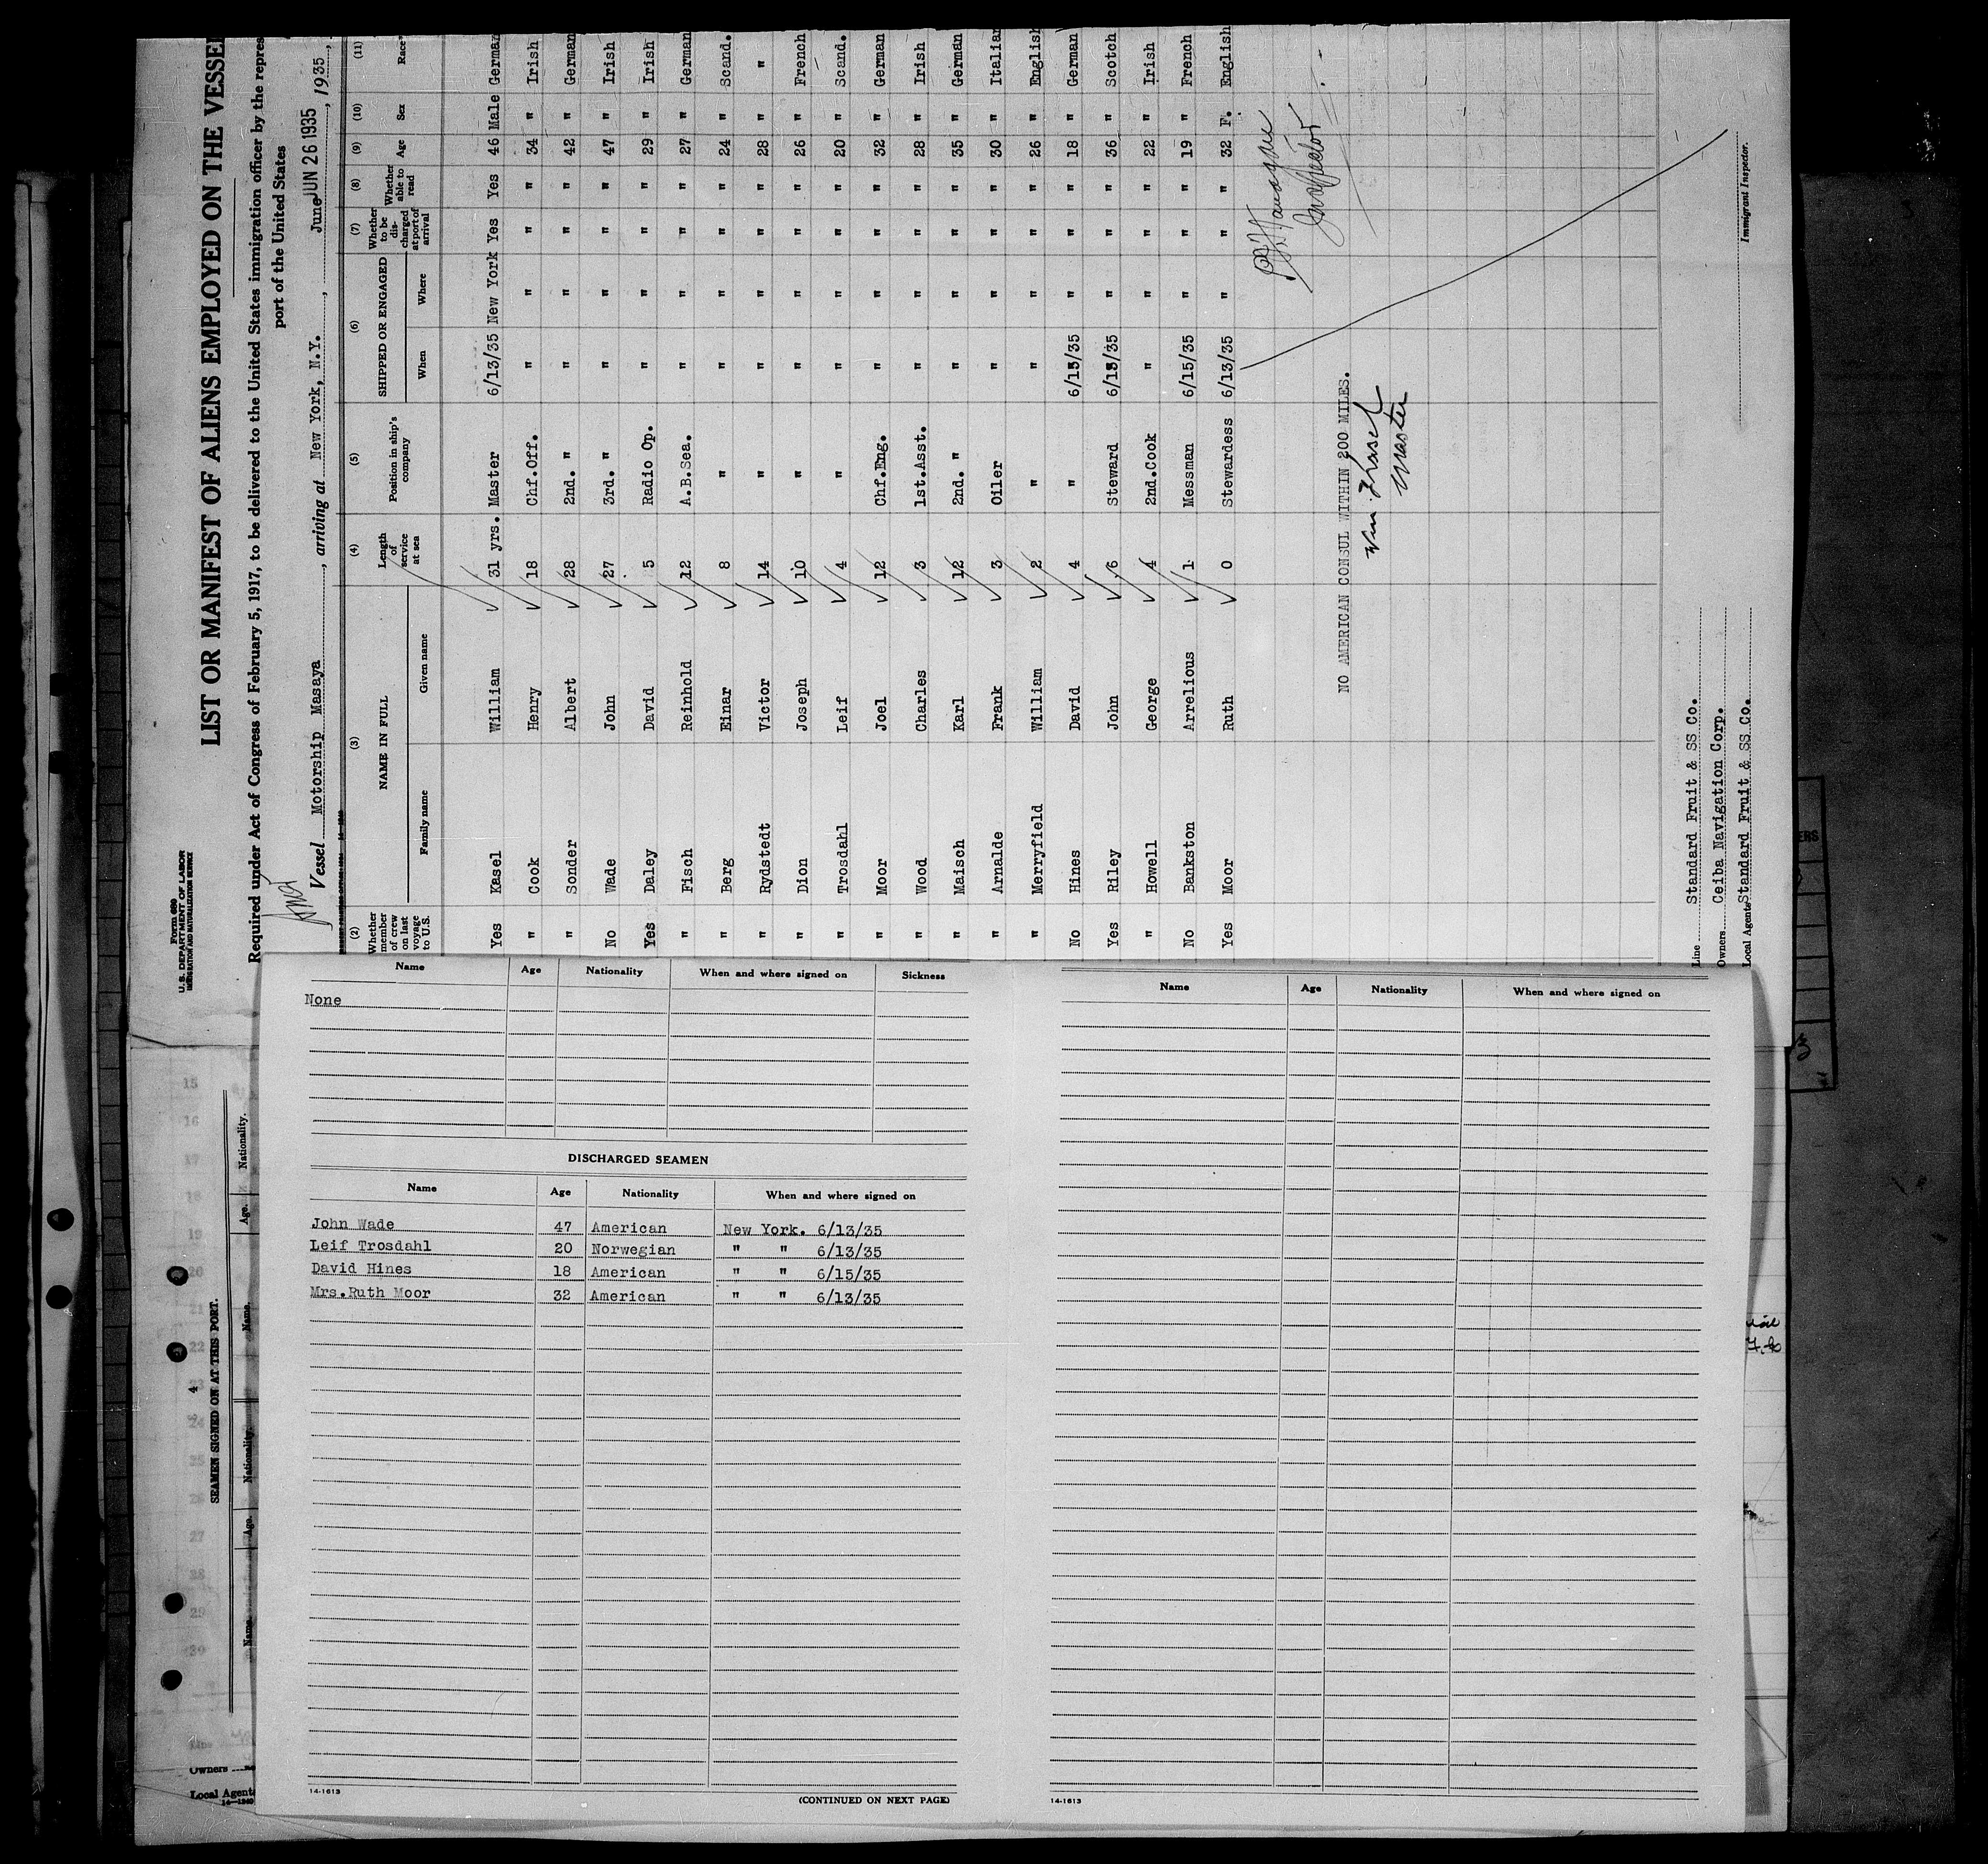 Form 689
U. S. DEPARTMENT OF LABOR
IMMIGRATION AND NATURALIZATION SERVICE
LIST OR MANIFEST OF ALIENS EMPLOYED ON THE VESSE
Required under Act of Congress of February 5, 1917, to be delivered to the United States immigration officer by the repres
port of the United States
Vessel Motorship Masaya, arriving at New York, N.Y., June JUN 26 1935, 1935,
(2) (3) (4) (5) (6) (7) (8) (9) (10) (11)
Whether member of crew on last voyage to U.S. NAME IN FULL Length of service at sea Position in ship's company SHIPPED OR ENGAGED Whether to be discharged at port of arrival Whether able to read Age Sex Race*
Family name Given name When Where
Yes Kasel William 31 yrs. Master 6/13/35 New York Yes Yes 46 Male German
" Cook Henry 18 Chf.Off. " " " " 34 " Irish
" Sonder Albert 28 2nd. " " " " " 42 " German
No Wade John 27 3rd. " " " " " 47 " Irish
Yes Daley David 5 Radio Op. " " " " 29 " Irish
" Fisch Reinhold 12 A.B.Sea. " " " " 27 " German
" Berg Einar 8 " " " " " 24 " Scand.
" Rydstedt Victor 14 " " " " " 28 " "
" Dion Joseph 10 " " " " " 26 " French
" Trosdahl Leif 4 " " " " " 20 " Scand.
" Moor Joel 12 Chf.Eng. " " " " 32 " German
" Wood Charles 3 1st.Asst. " " " " 28 " Irish
" Maisch Karl 12 2nd. " " " " " 35 " German
" Arnalde Frank 3 Oiler " " " " 30 " Italian
" Merryfield William 2 " " " " " 26 " English
No Hines David 4 " 6/15/35 " " " 18 " German
Yes Riley John 6 Steward 6/13/35 " " " 36 " Scotch
" Howell George 4 2nd.Cook " " " " 22 " Irish
No Bankston Arrelious 1 Messman 6/15/35 " " " 19 " French
Yes Moor Ruth 0 Stewardess 6/13/35 " " " 32 F. English
Inspector
NO AMERICAN CONSUL WITHIN 200 MILES.
Wm. Kasel
Master
Line Standard Fruit & SS Co.
Owners Ceiba Navigation Corp.
Local Agents Standard Fruit & SS Co.
Immigrant Inspector.
Name Age Nationality When and where signed on Sickness
None
DISCHARGED SEAMEN
Name Age Nationality When and where signed on
John Wade 47 American New York. 6/13/35
Leif Trosdahl 20 Norwegian " " 6/13/35
David Hines 18 American " " 6/15/35
Mrs.Ruth Moor 32 American " " 6/13/35
14-1613
(CONTINUED ON NEXT PAGE)
Name Age Nationality When and where signed on
14-1613
4
SEAMEN SIGNED ON AT THIS PORT.
Name. Age. Nationality. Name. Age. Nationality.
15
16
17
18
19
20
21
22
23
24
25
26
27
28
29
30
Owners
Local Agents
14-1240
ERS
3